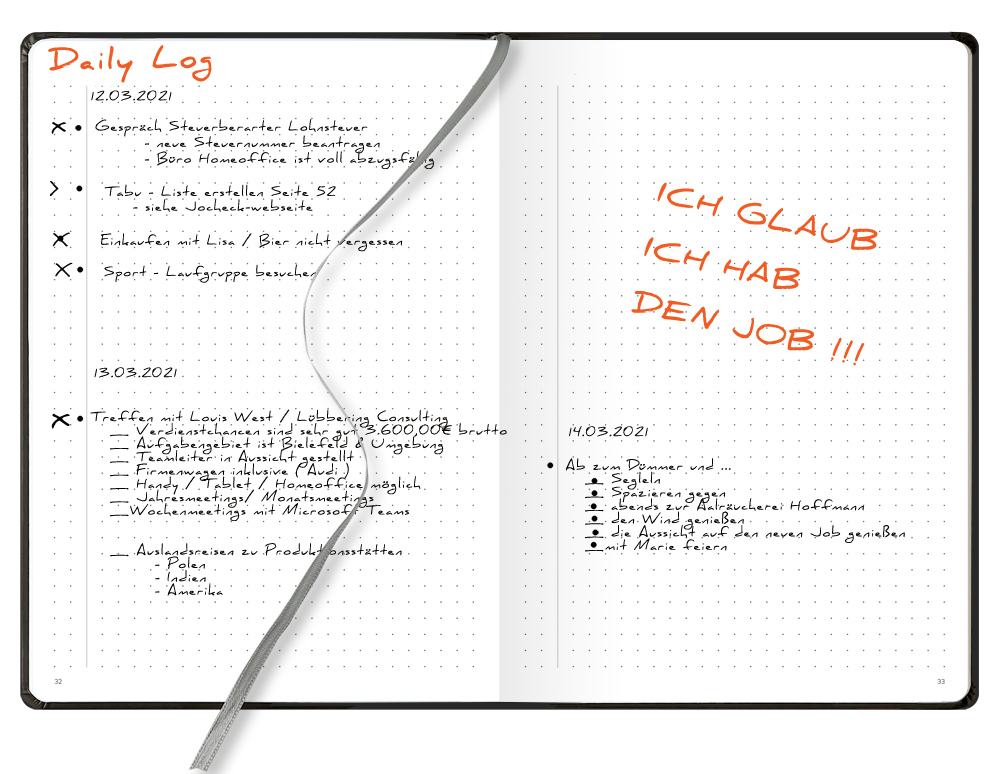 Daily Log
12.03.2021
× • Gespräch Steuerberarter Lohnsteuer
- neue Steuernummer beantragen
- Büro Homeoffice ist voll abzugsfähig
> • Tabu - Liste erstellen Seite 52
- siehe Jocheck-webseite
× Einkaufen mit Lisa / Bier nicht vergessen
× • Sport - Laufgruppe besuchen
13.03.2021
× • Treffen mit Louis West / Lübbering Consulting
__ Verdienstchancen sind sehr gut 3.600,00€ brutto
__ Aufgabengebiet ist Bielefeld & Umgebung
__ Teamleiter in Aussicht gestellt
__ Firmenwagen inklusive ( Audi )
__ Handy / Tablet / Homeoffice möglich
__ Jahresmeetings/ Monatsmeetings
__Wochenmeetings mit Microsoft Teams
__ Auslandsreisen zu Produktionsstätten
- Polen
- Indien
- Amerika
32
ICH GLAUB
ICH HAB
DEN JOB !!!
14.03.2021
• Ab zum Dümmer und ...
• Segleln
• Spazieren gegen
• abends zur Aalräucherei Hoffmann
• den Wind genießen
• die Aussicht auf den neuen Job genießen
• mit Marie feiern
33